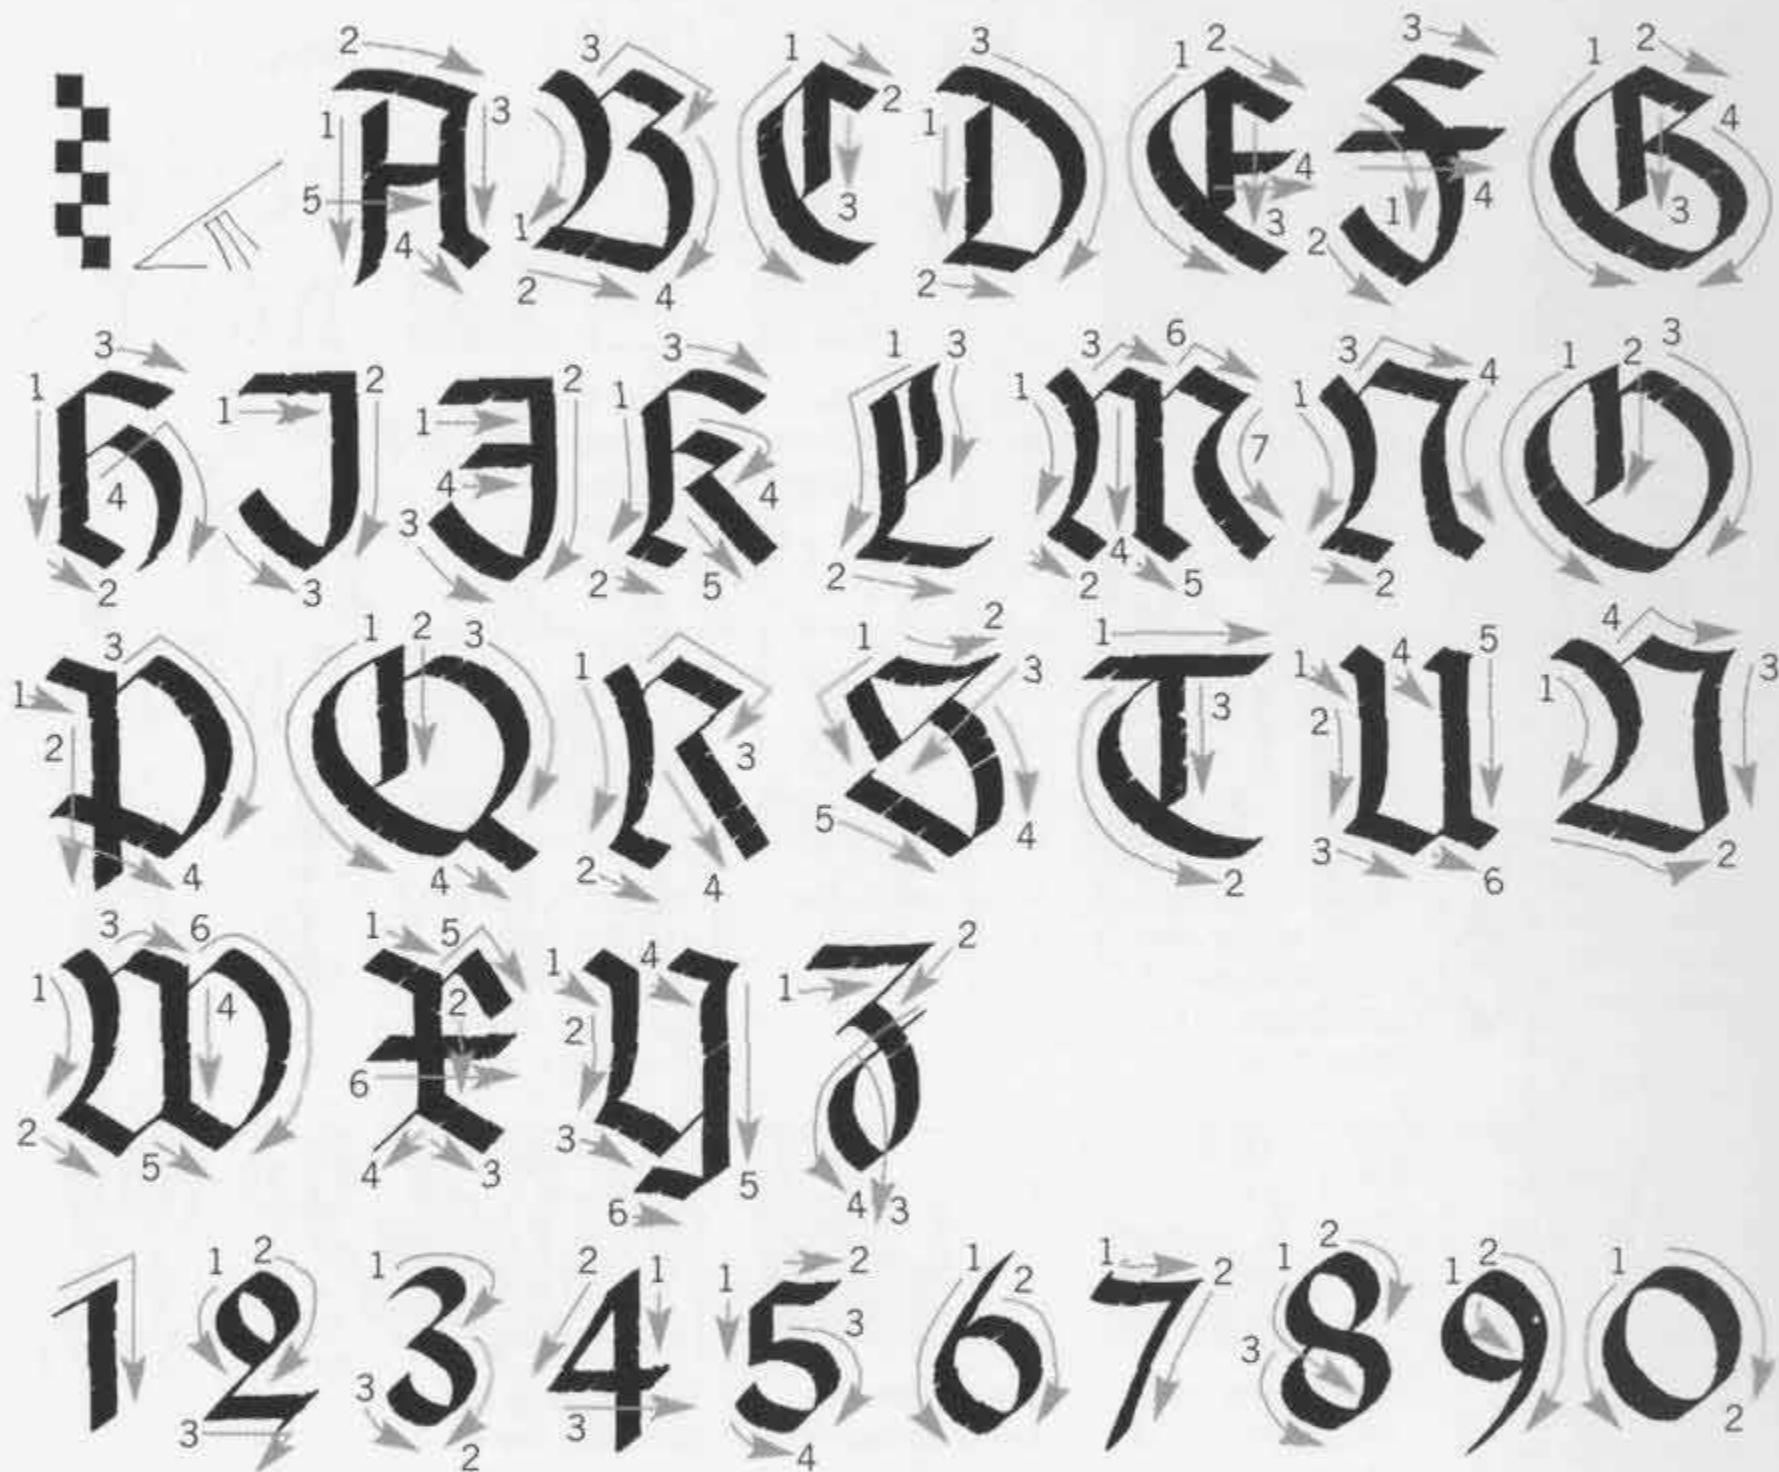 A B C D E F G
H I J K L M N O
P Q R S T U V
W X Y Z
1 2 3 4 5 6 7 8 9 0